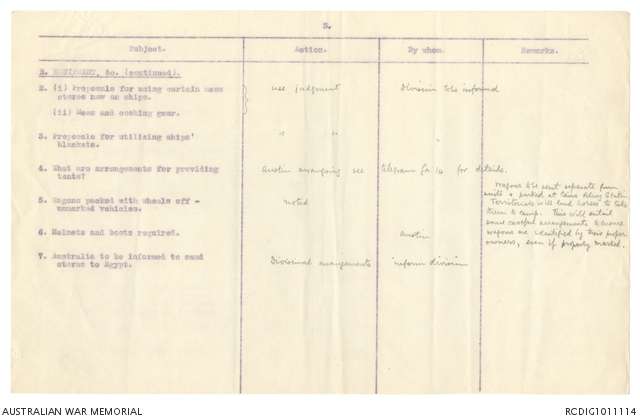 2.
Subject. Action. By whom. Remarks.
B. EQUIPMENT, &c. (continued).
2. (i) Proposals for using certain mess
stores now on ships. use judgment Division to be informed
(ii) Mess and cooking gear.
3. Proposals for utilising ships'
blankets. " " "
4. What are arrangements for providing
tents? Austin arranging see telegram for details.
5. Wagons packed with wheels off -
unmarked vehicles. noted
Wagons to be sent separate from
units & parked at Cairo Siding Station
Territorials will lend horses to take
them to camp. This will entail
some careful arrangements to ensure
wagons are identified by their proper
owners, even if properly marked.
6. Helmets and boots required. Austin
7. Australia to be informed to send
stores to Egypt. Divisional arrangements inform division
AUSTRALIAN WAR MEMORIAL RCDIG1011114